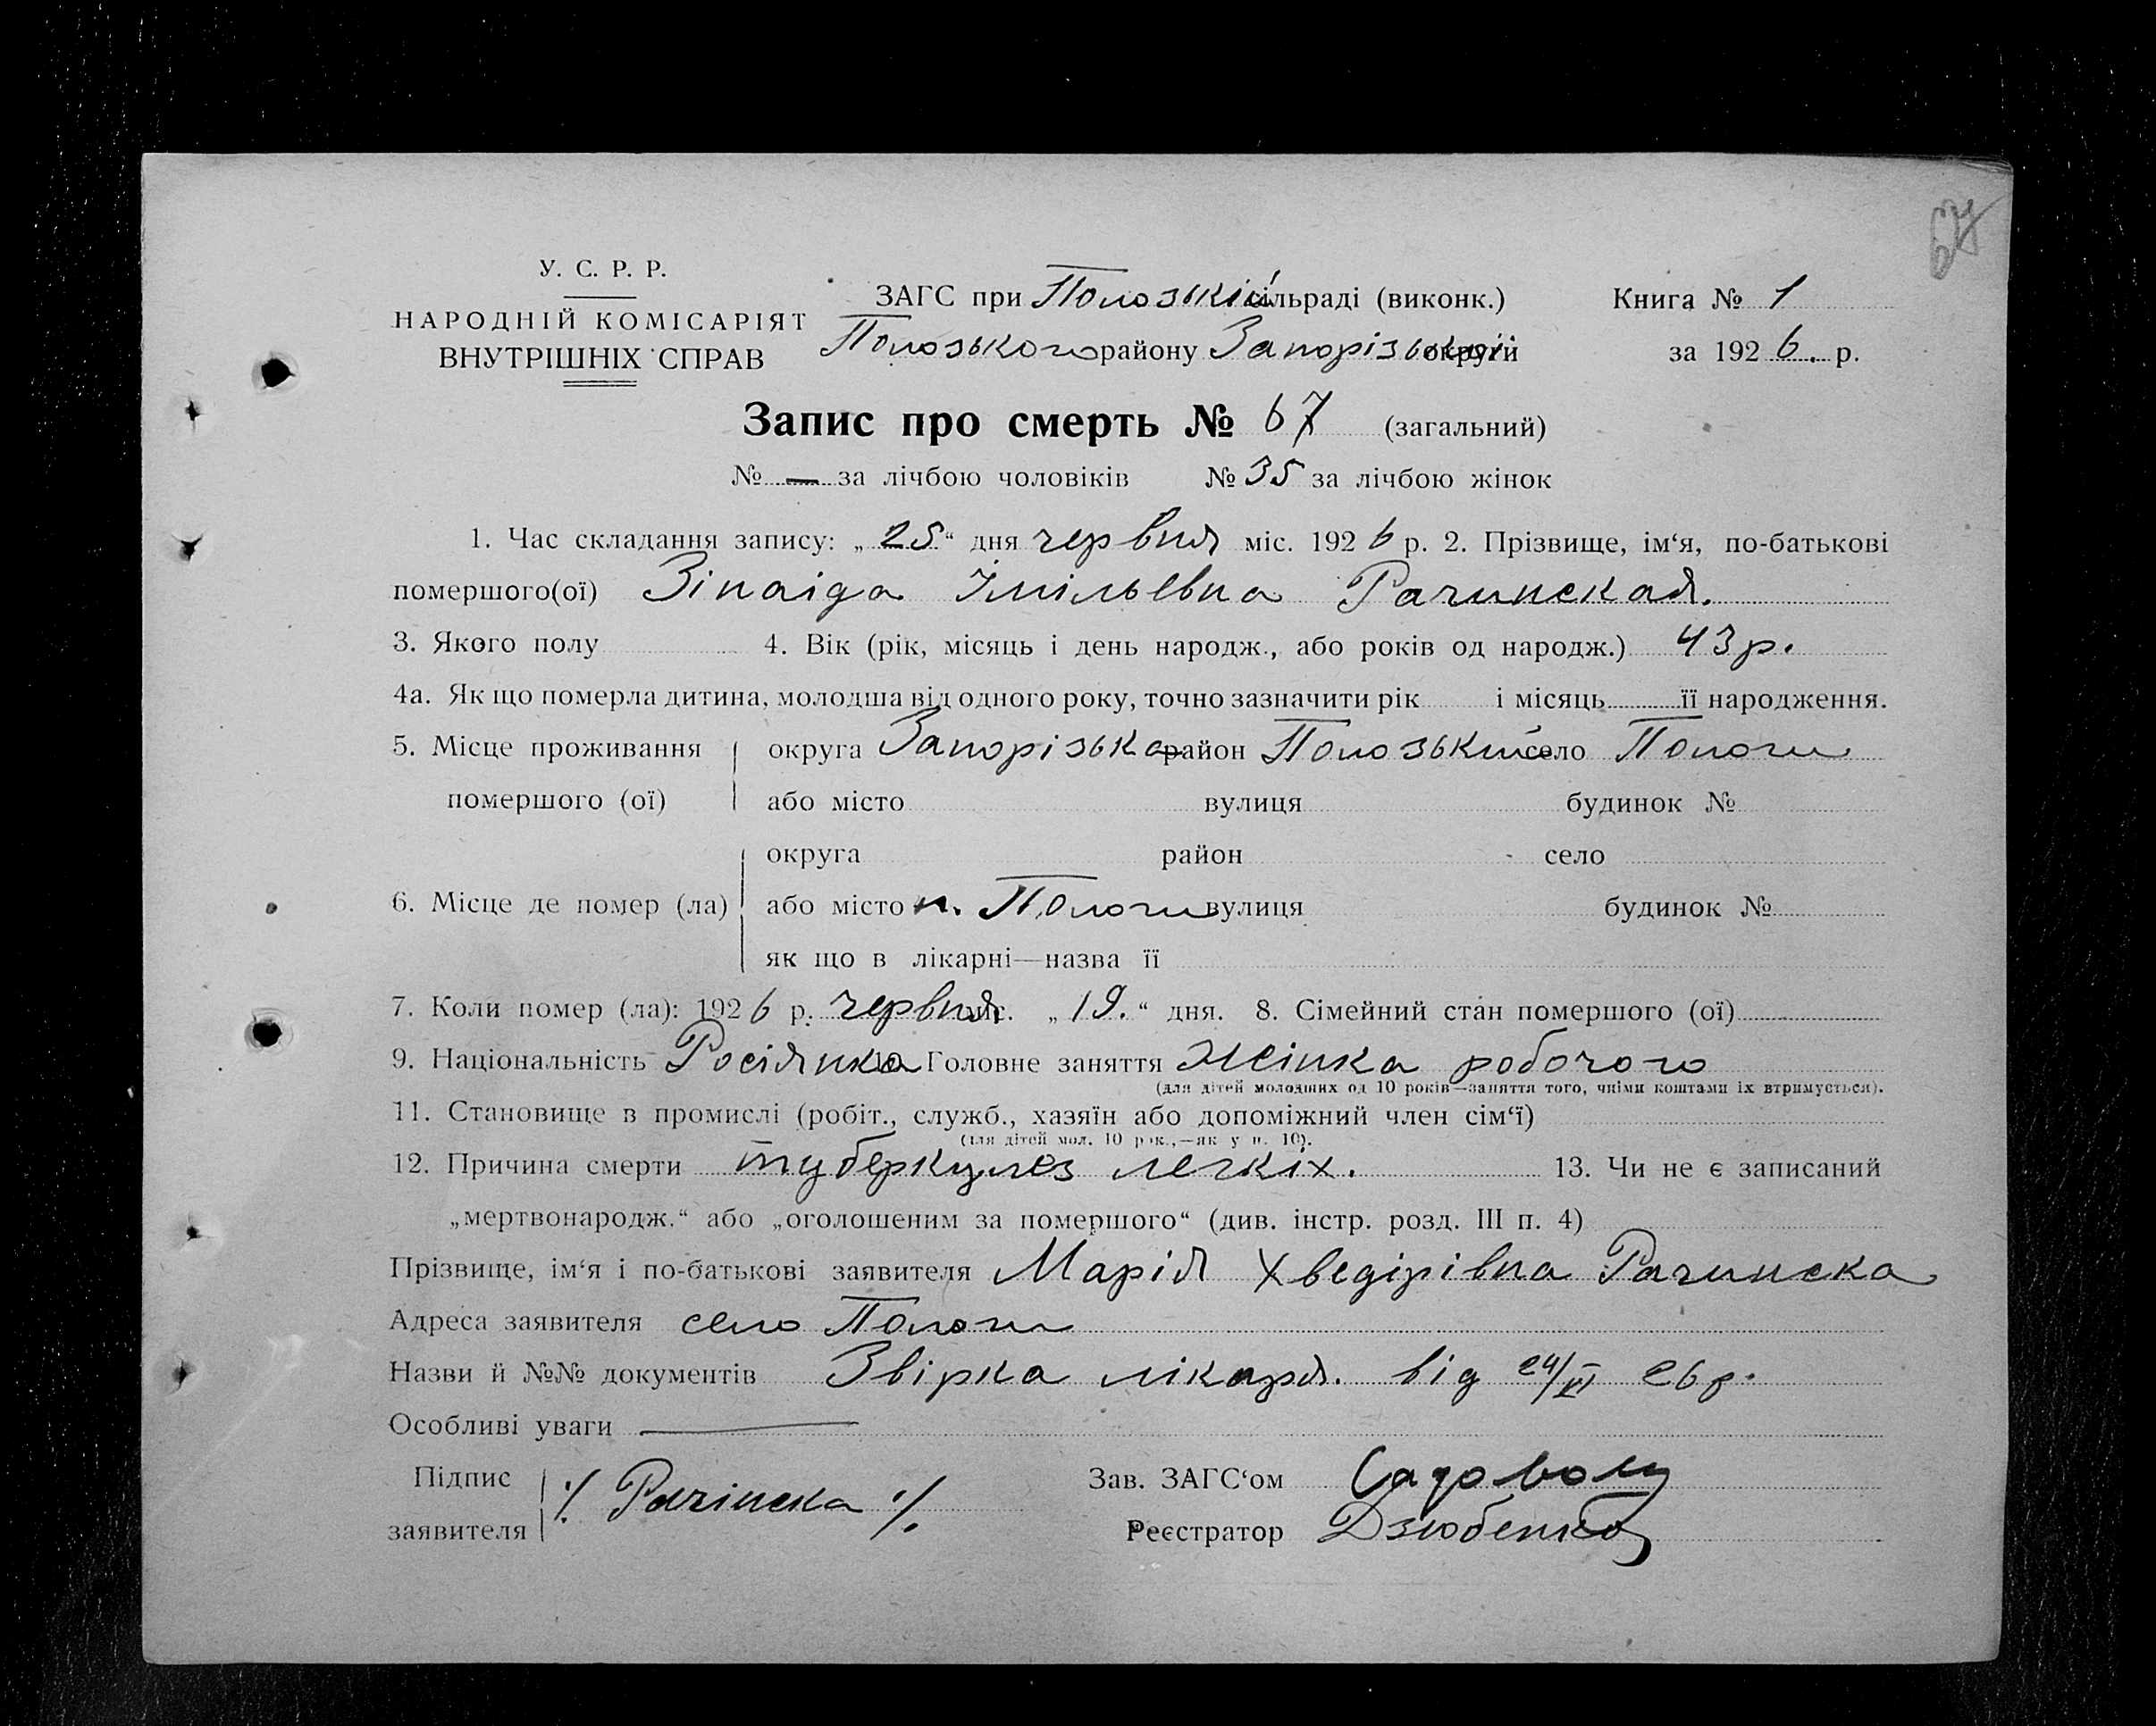 67
У. С. Р. Р.
НАРОДНІЙ КОМІСАРІЯТ
ВНУТРІШНІХ СПРАВ
ЗАГС при Полозькій сільраді (виконк.)
Полозького району Запорізької округи
Книга № 1
за 1926. р.
Запис про смерть № 67 (загальний)
№ — за лічбою чоловіків № 35 за лічбою жінок
1. Час складання запису: „25“ дня червня міс. 1926 р. 2. Прізвище, ім‘я, по-батькові
помершого(ої) Зінаіда Імільевна Рачинская.
3. Якого полу 4. Вік (рік, місяць і день народж., або років од народж.) 43 р.
4а. Як що померла дитина, молодша від одного року, точно зазначити рік і місяць її народження.
5. Місце проживання округа Запорізька район Полозький село Пологи
помершого (ої) або місто вулиця будинок №
округа район село
6. Місце де помер (ла) або місто п. Пологи вулиця будинок №
як що в лікарні—назва її
7. Коли помер (ла): 1926 р. червня міс. „19.“ дня. 8. Сімейний стан помершого (ої)
9. Національність Росіянка 10. Головне заняття Жінка робочого
(для дітей молодших од 10 років—заняття того, чиїми коштами їх втримується).
11. Становище в промислі (робіт., служб., хазяїн або допоміжний член сім‘ї)
(для дітей мол. 10 рок.,—як у п. 10).
12. Причина смерти туберкулез легкіх. 13. Чи не є записаний
„мертвонародж.“ або „оголошеним за помершого“ (див. інстр. розд. III п. 4)
Прізвище, ім‘я і по-батькові заявителя Марія Хведірівна Рачинска
Адреса заявителя село Пологи
Назви й №№ документів Звірка лікаря. від 24/VI 26 р.
Особливі уваги —
Підпис
заявителя ./. Рачінска ./.
Зав. ЗАГС‘ом Садовый
Реєстратор Дзюбенко